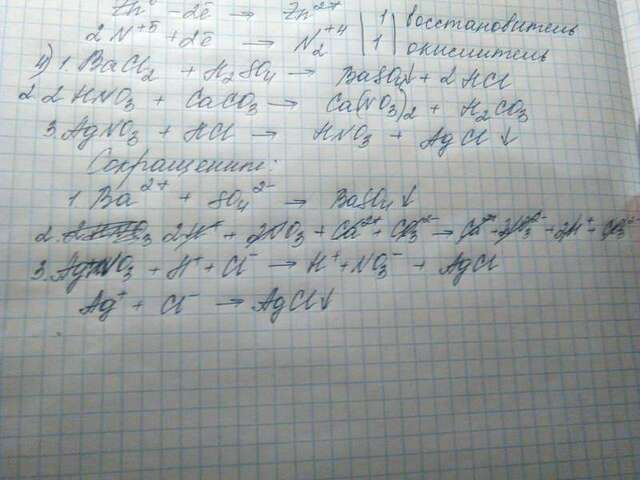 Zn⁰ - 2ē → Zn²⁺ | 1 | восстановитель
2 N⁺⁵ + 2ē → N₂⁺⁴ | 1 | окислитель
4) 1. BaCl₂ + H₂SO₄ → BaSO₄↓ + 2 HCl
2 2 HNO₃ + CaCO₃ → Ca(NO₃)₂ + H₂CO₃
3. AgNO₃ + HCl → HNO₃ + AgCl↓
Сокращенные:
1. Ba²⁺ + SO₄²⁻ → BaSO₄↓
2. 2H⁺ + 2NO₃ + Ca²⁺ + CO₃²⁻ → Ca²⁺ + 2NO₃⁻ + 2H⁺ + CO₃²⁻
3. AgNO₃ + H⁺ + Cl⁻ → H⁺ + NO₃⁻ + AgCl
Ag⁺ + Cl⁻ → AgCl↓